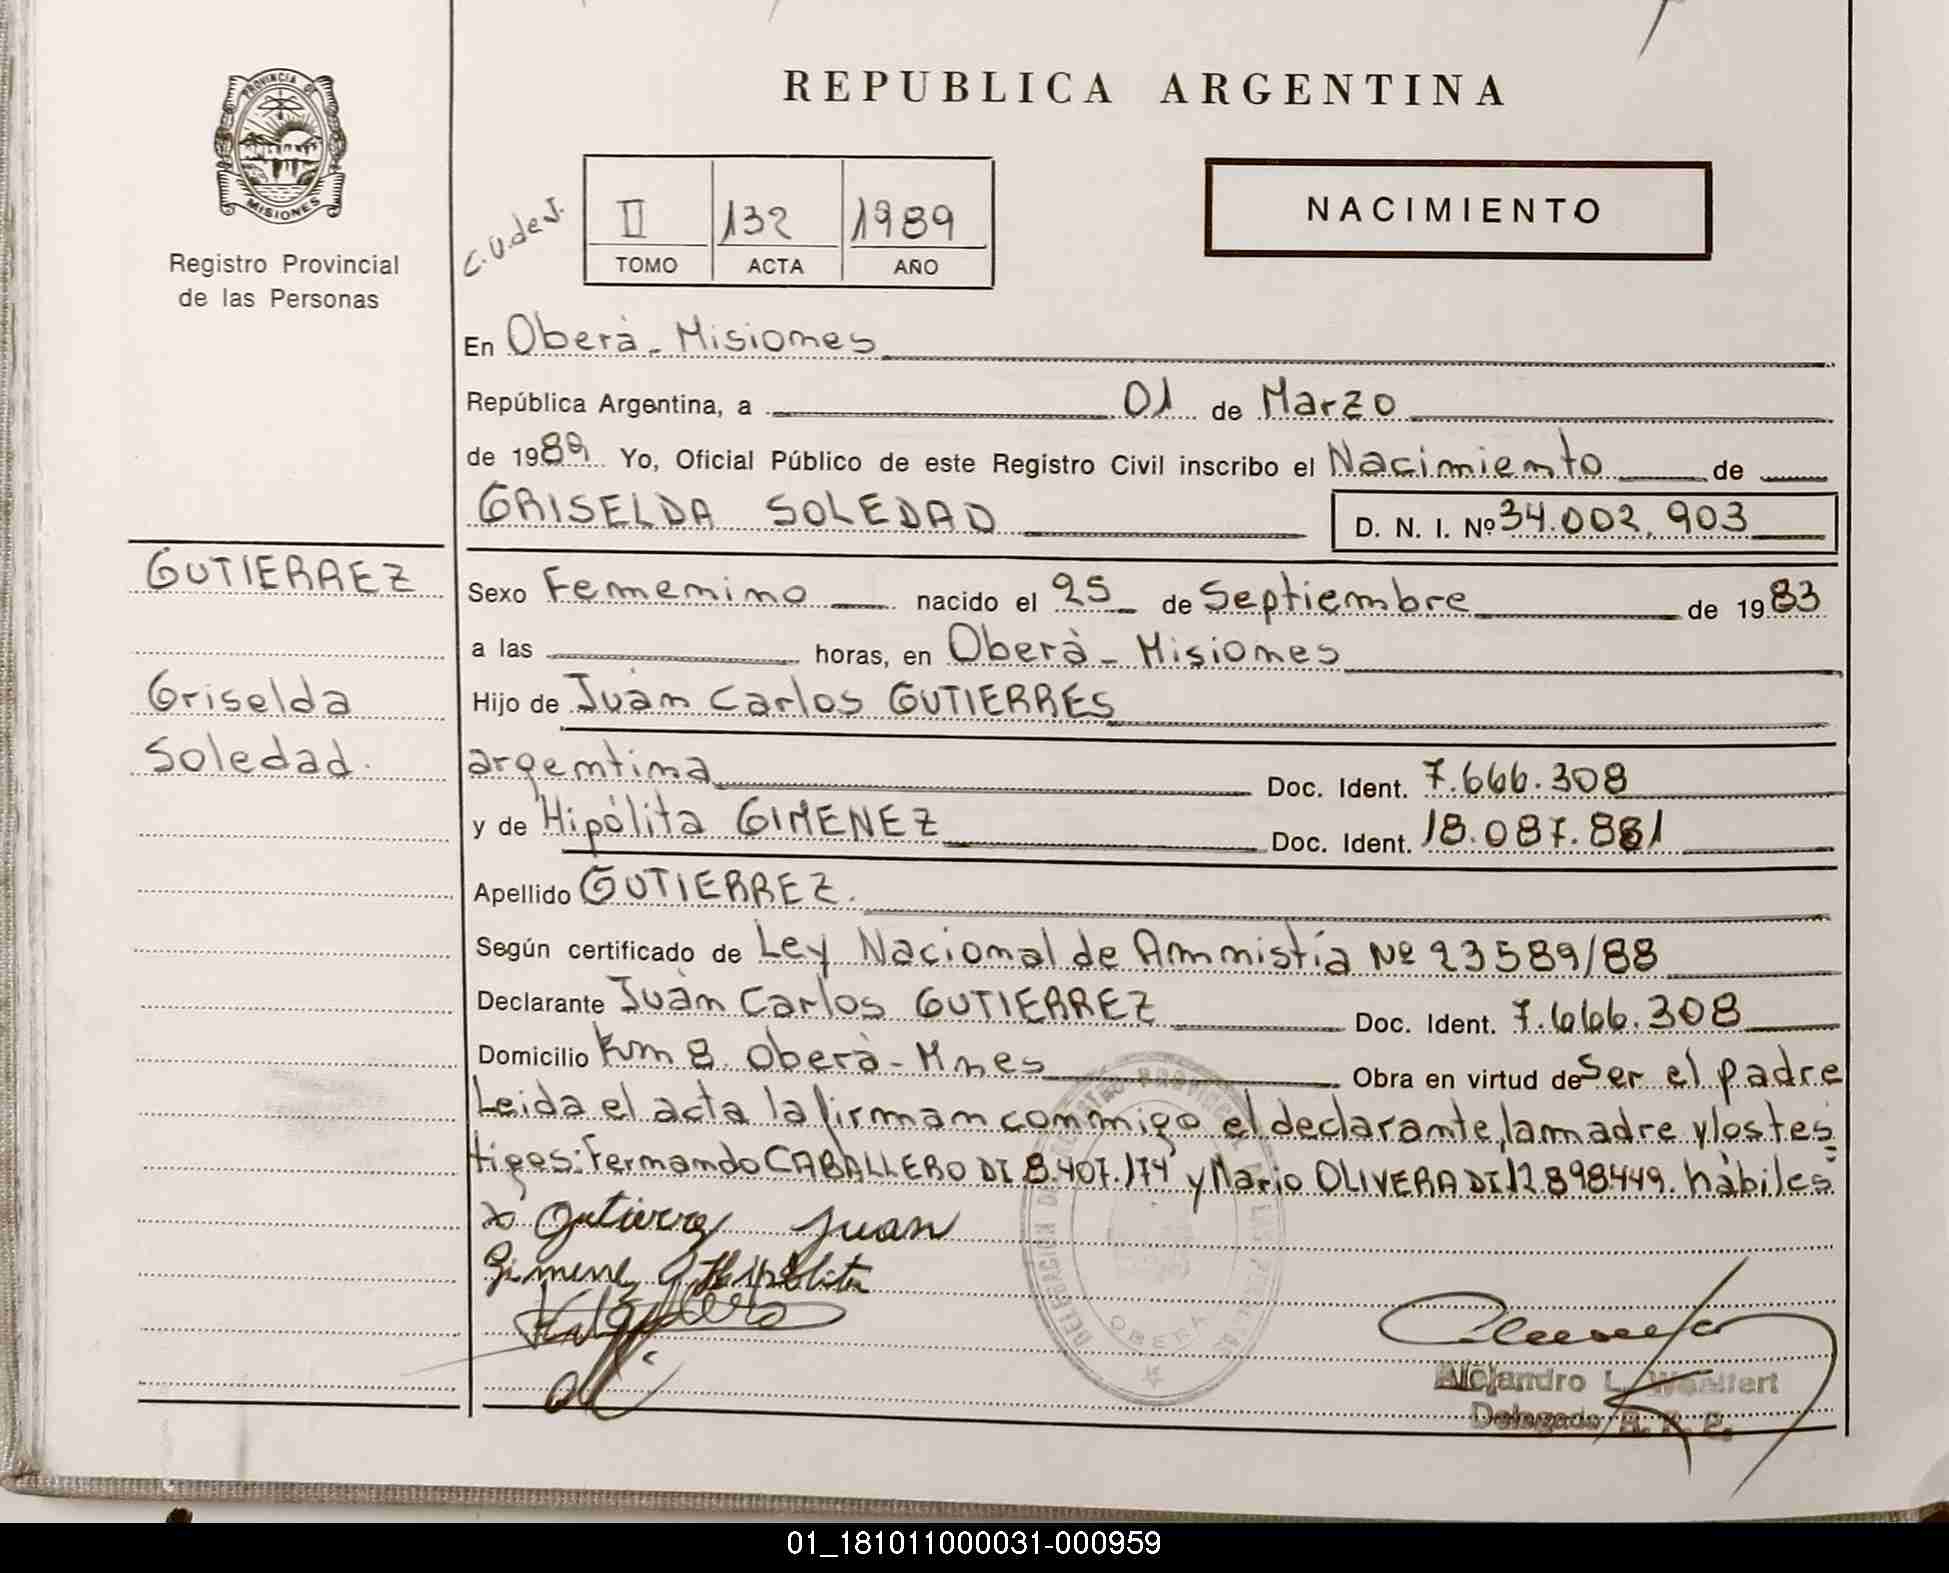 REPUBLICA ARGENTINA
PROVINCIA DE
MISIONES
Registro Provincial
de las Personas
C.U.de J.
II 132 1989
TOMO ACTA AÑO
NACIMIENTO
En Oberà - Misiones
República Argentina, a 01 de Marzo
de 1989 Yo, Oficial Público de este Registro Civil inscribo el Nacimiento de
GRISELDA SOLEDAD D. N. I. Nº 34.002.903
GUTIERREZ
Griselda
Soledad.
Sexo Femenino nacido el 25 de Septiembre de 1983
a las horas, en Oberà - Misiones
Hijo de Juàn Carlos GUTIERRES
argentina Doc. Ident. 7.666.308
y de Hipólita GIMENEZ Doc. Ident. 18.087.881
Apellido GUTIERREZ.
Según certificado de Ley Nacional de Amnistía Nº 23589/88
Declarante Juàn Carlos GUTIERREZ Doc. Ident. 7.666.308
Domicilio Km 8. Oberà - Mnes Obra en virtud de Ser el padre
Leida el acta la firman conmigo el declarante, la madre y los tes
tigos: Fernando CABALLERO DI 8.407.174 y Mario OLIVERA DI 12898449. hàbiles
Gutierrez Juan
Gimenez Hipolita
DELEGACIÓN DEL REGISTRO PROVINCIAL DE LAS PERSONAS
OBERA
Alejandro L.
Delegado R. P. P.
01_181011000031-000959